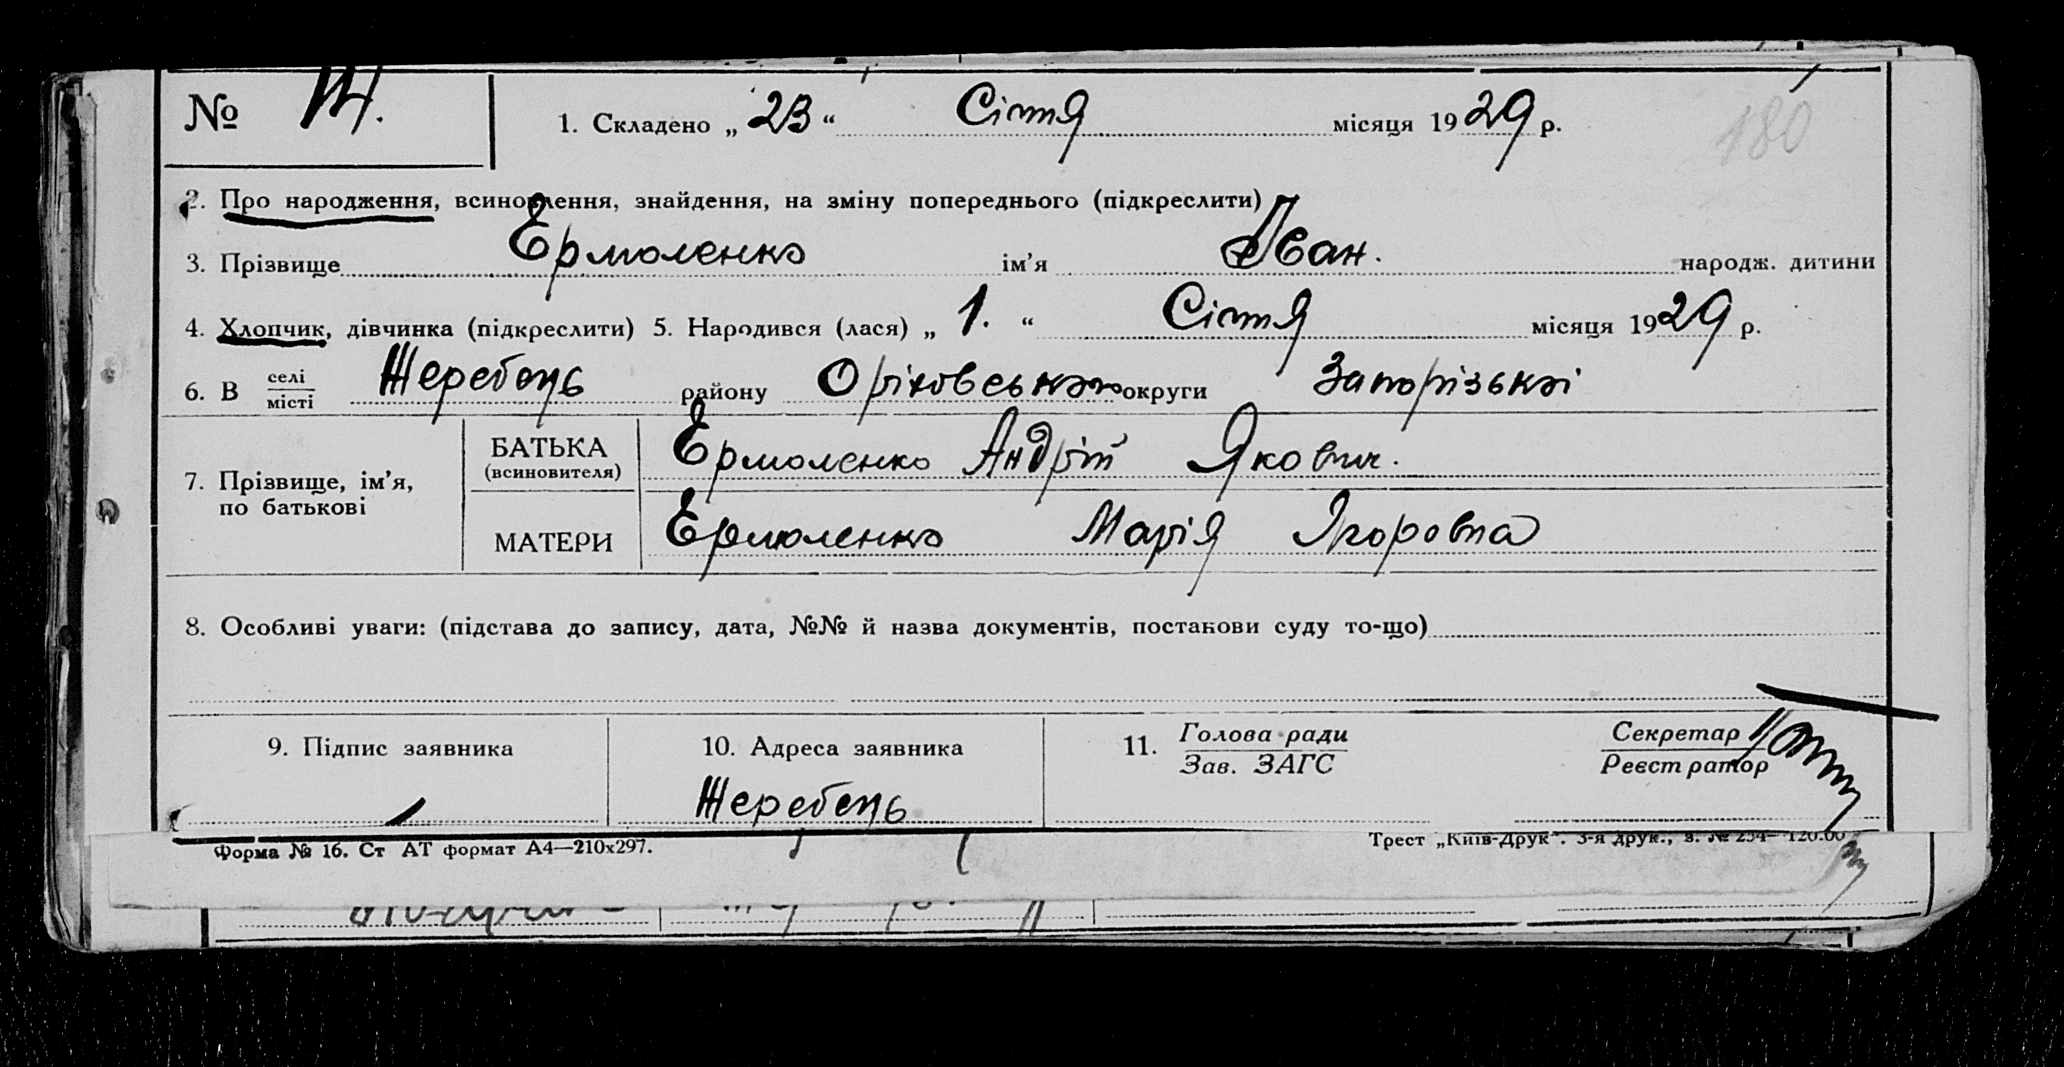 № 14. 1. Складено „ 23 “ Січня місяця 1929 р.
180
2. Про народження, всиновлення, знайдення, на зміну попереднього (підкреслити)
3. Прізвище Ермоленко ім’я Іван. народж. дитини
4. Хлопчик, дівчинка (підкреслити) 5. Народився (лася) „ 1. “ Січня місяця 1929 р.
6. В селі місті Жеребець району Оріховського округи Запорізької
7. Прізвище, ім’я, по батькові
БАТЬКА (всиновителя) Ермоленко Андрій Якович.
МАТЕРИ Ермоленко Марія Ігоровна
8. Особливі уваги: (підстава до запису, дата, №№ й назва документів, постанови суду то-що)
9. Підпис заявника 10. Адреса заявника 11. Голова ради Секретар
Зав. ЗАГС Реєстратор
Жеребець
Форма № 16. Ст АТ формат А4—210х297. Трест „Київ-Друк“. 3-я друк., з. № 254—